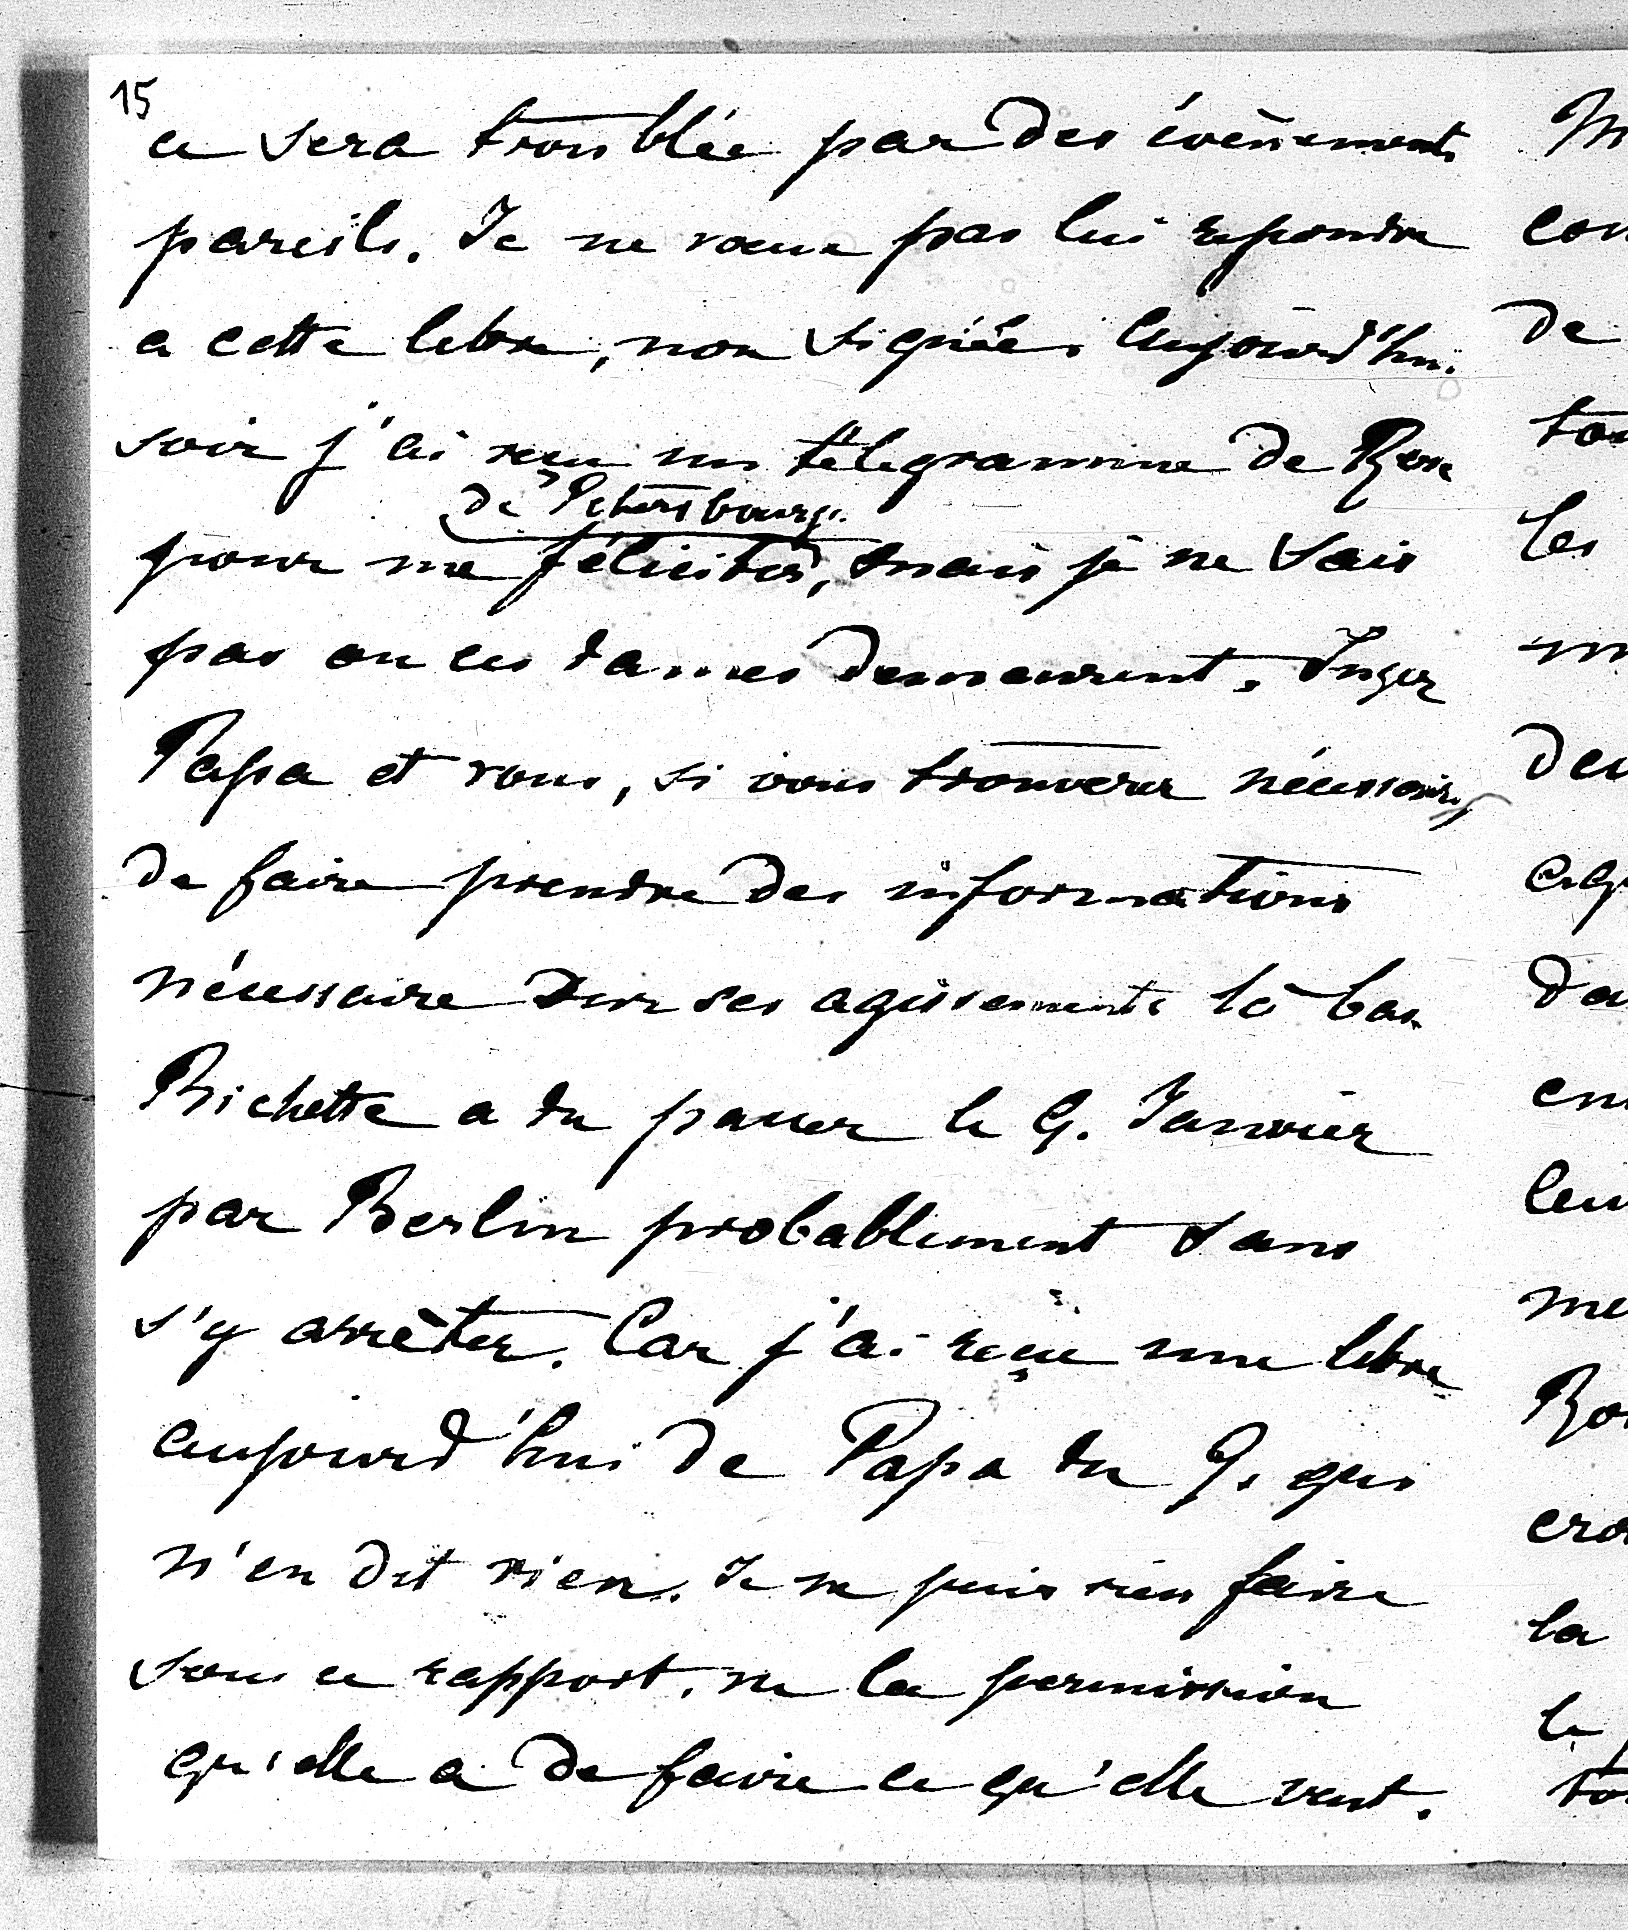 15
ce sera troublée par des évènements
pareils. Je ne veux pas lui repondre
a cette lettre, non signée. Aujourd'hui
soir j'ai reçu un télegramme de Rose
de Petersbourg.
pour me féliciter, mais je ne sais
pas ou ces dames demeurent. Juger
Papa et vous, si vous trouverez nécessaire
de faire prendre des informations
nécessaire sur ses agissements là bas
Richette a du passer le 9. Janvier
par Berlin probablement sans
s'y arrêter. Car j'ai reçu une lettre
aujourd'hui de Papa du 9. qui
n'en dit rien. Je ne puis rien faire
sous ce rapport, vu la permission
qu'elle a de faire ce qu'elle veut.
de
les
la
le